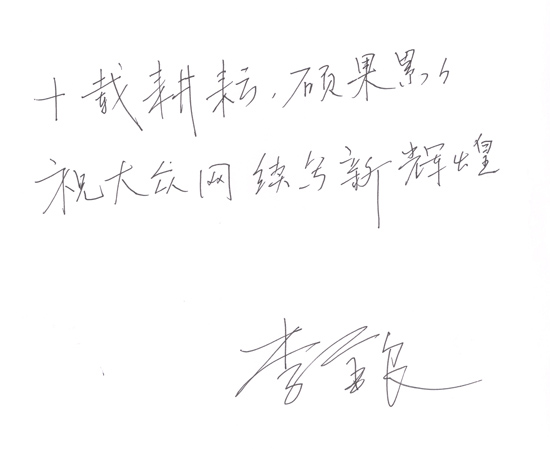 十载耕耘，硕果累累
祝大众网续写新辉煌
李